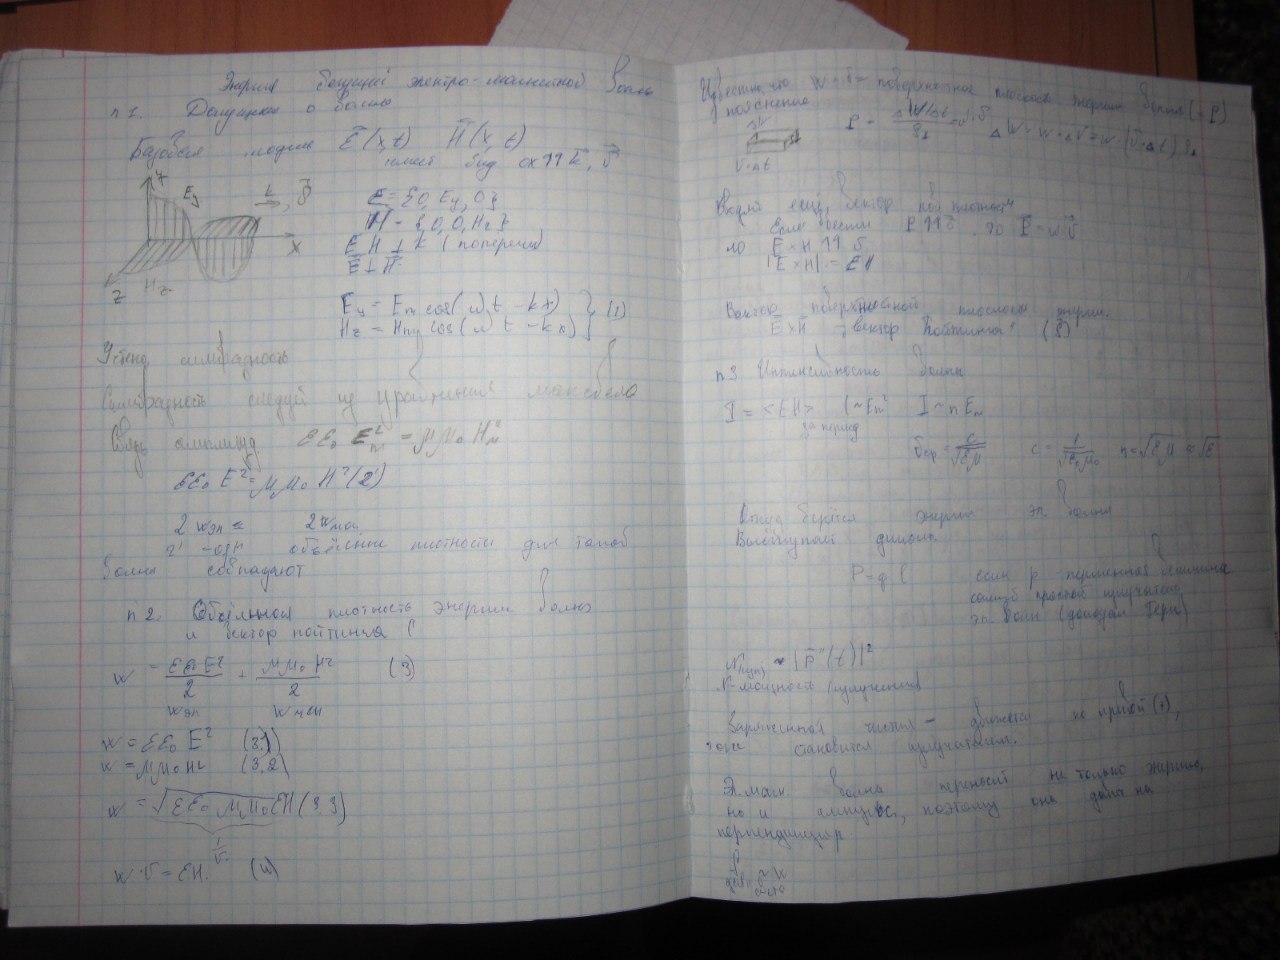 Энергия бегущей электро-магнитной волны
п 1. Допущения о волне
Базовая модель E(x,t) H(x,t)
имеет вид ox↑↑k, v
Y Ey k, v
X
Z Hz
E = {0, Ey, 0}
H = {0, 0, Hz}
E, H ⊥ k (поперечн)
E ⊥ H
Ey = Em cos(ωt - kx)
Hz = Hm cos(ωt - kx) } (1)
симфазность
Симфазность следует из уравнения максвелла
Связь амплитуд εε₀ Em² = μμ₀ Hm²
εε₀ E² = μμ₀ H² (2')
2 wэл = 2 wмаг
2' объёмные плотности для такой
волны совпадают
п 2. Объёмная плотность энергии волны
и вектор пойтинга (
w = εε₀E²/2 + μμ₀H²/2 (3)
wэл wмаг
w = εε₀ E² (3.1)
w = μμ₀H² (3.2)
w = √εε₀ μμ₀ EH (3.3)
1/v
w·v = EH. (4)
Известно, что w·v = поверхностная плотность энергии волны (= P)
пояснение
P = ΔW/Δt / S⊥ = w·v ΔW = w·ΔV = w·(v·Δt) S⊥
v·Δt
вектор
P↑↑v, то P = w·v
но E×H ↑↑ v
|E×H| = EH
Вектор поверхностной плотности энергии.
E×H - вектор Пойтинга (S)
п 3 Интенсивность волны
I = <EH> (~Em² I ~ n Em
за период
vср = c/√εμ c = 1/√ε₀μ₀ n = √εμ ≈ √ε
Откуда берётся энергия эл волны
диполь
P = q l если p - переменная величина
самый простой излучатель
эл. волн (доказал Герц)
N ~ |p''(t)|²
N - мощность излучения
Заряженная частица - движется по кривой
тоже становится излучателем.
Эл.магн. волна переносит не только энергию,
но и импульс, поэтому она давит на
перпендикуляр